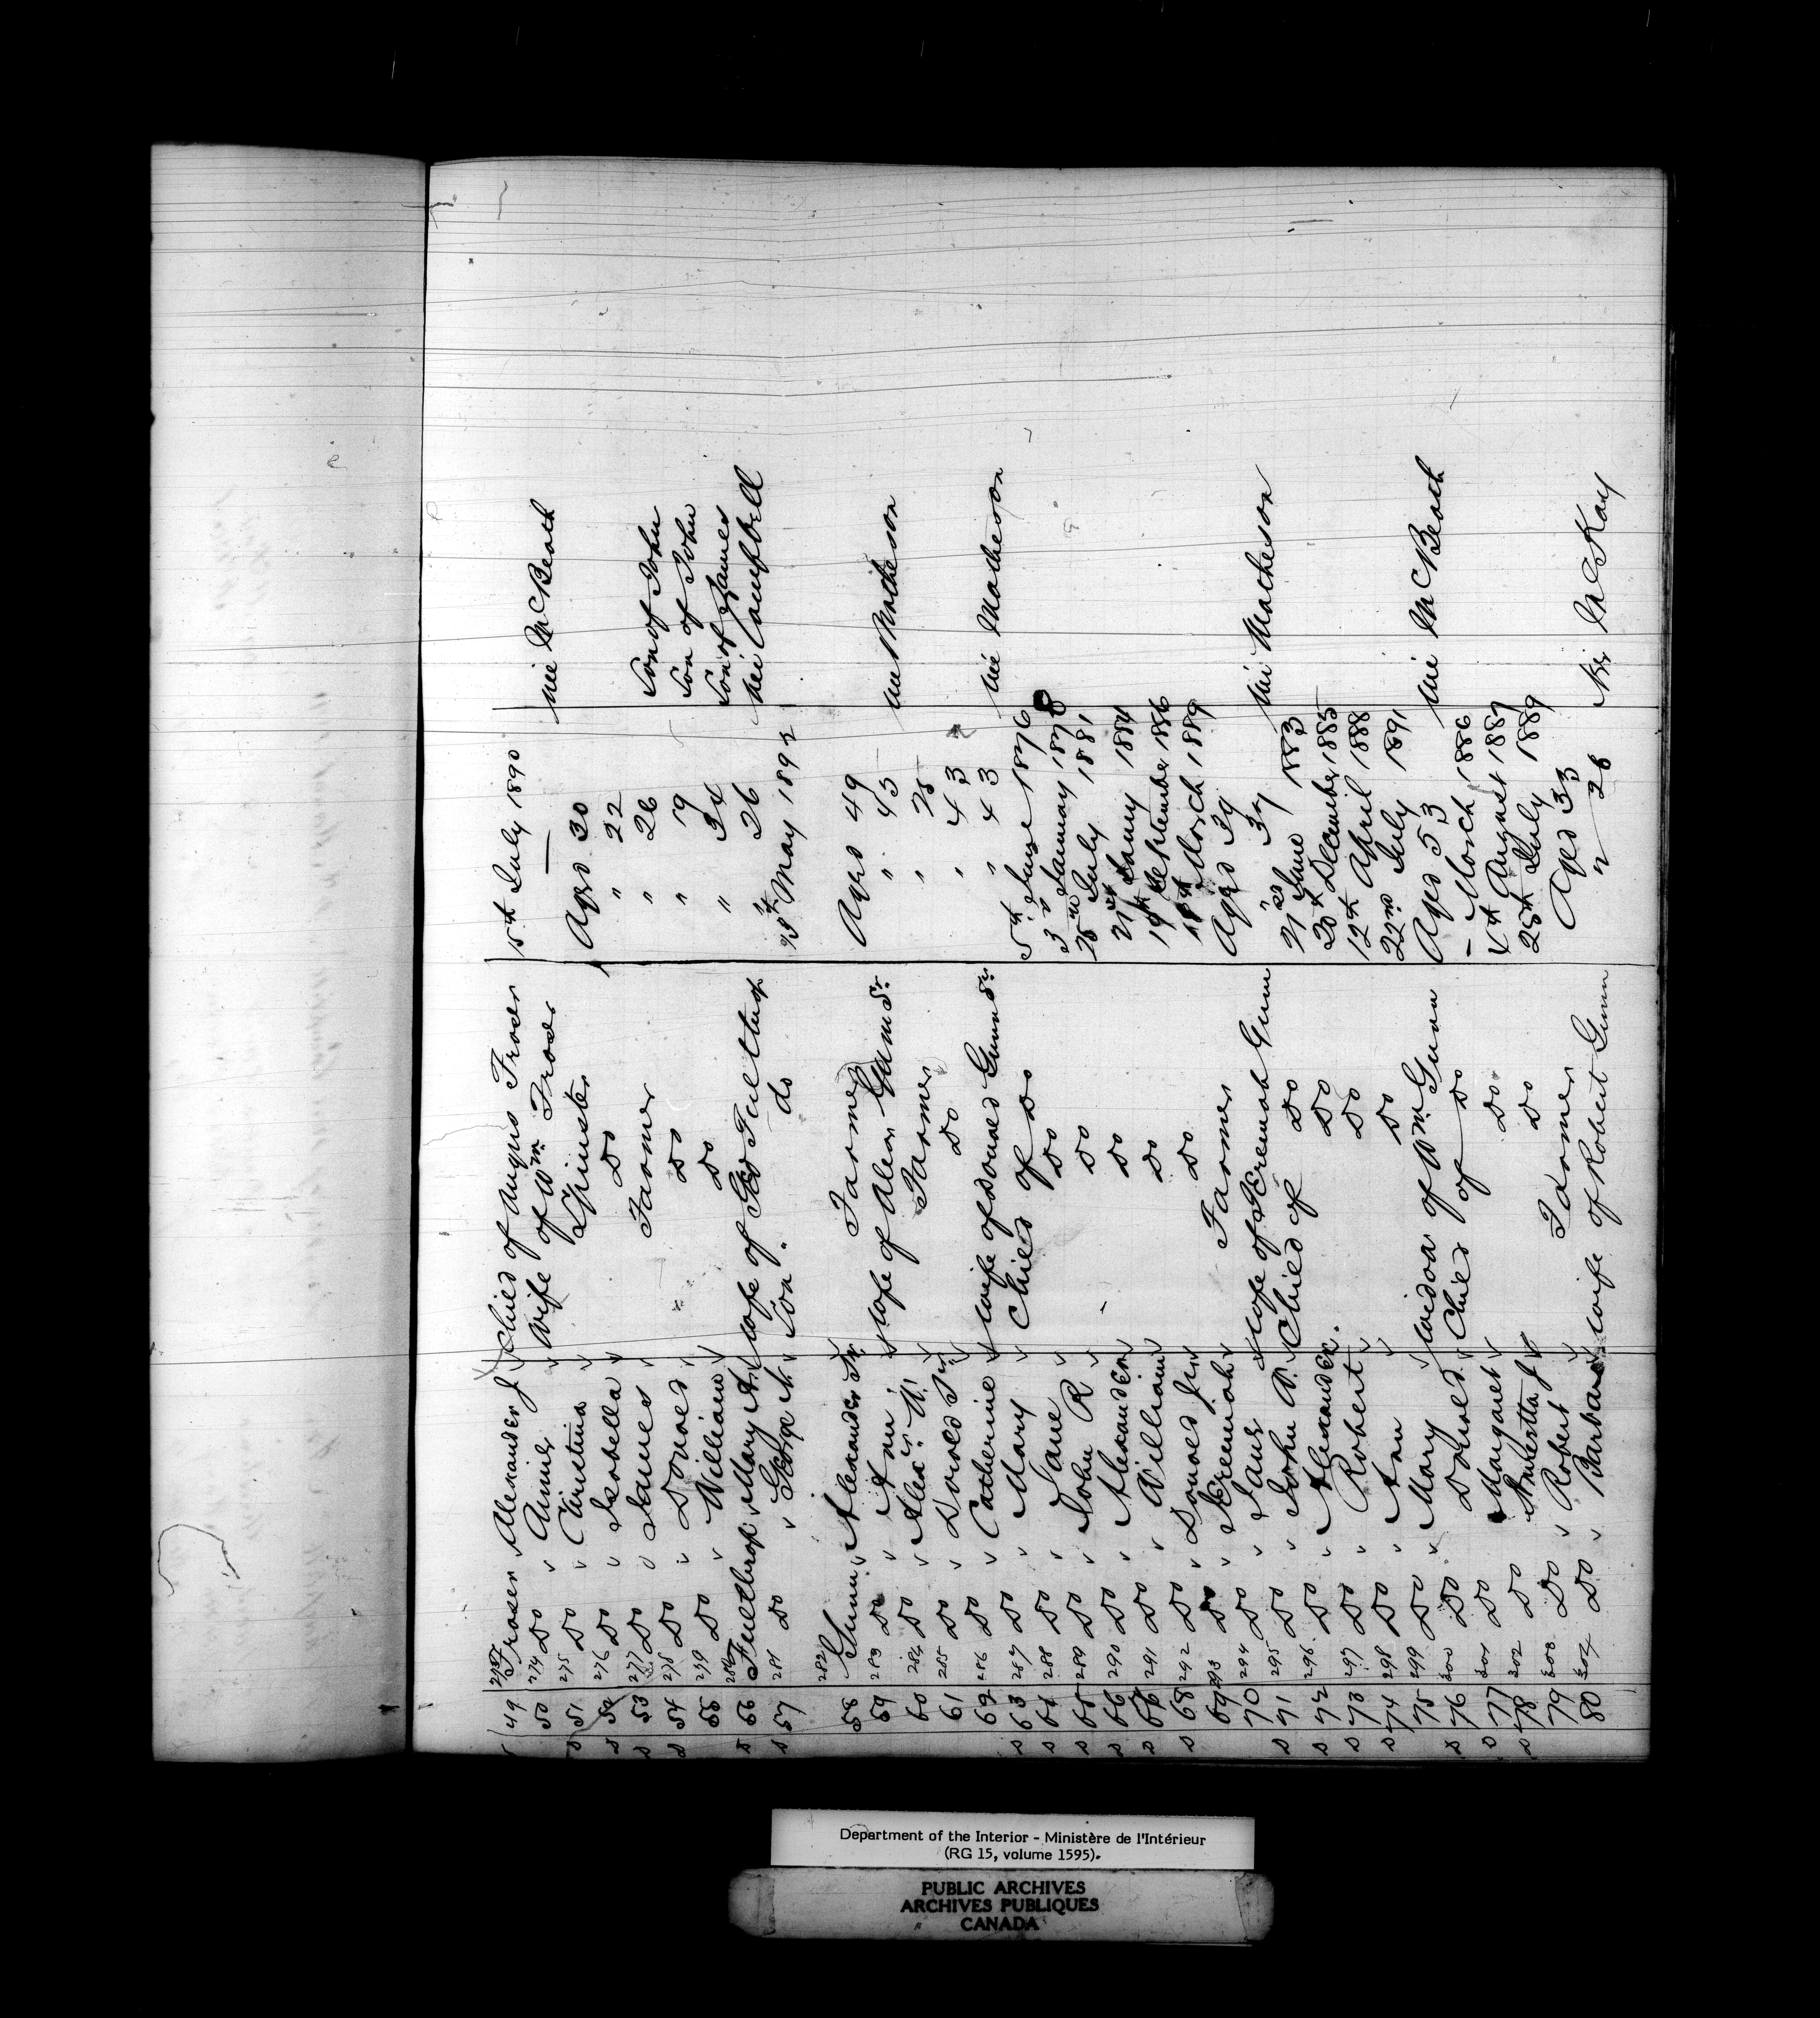 49 273 Fraser Alexander J Child of Angus Fraser 15th July 1890
50 274 Do Annie Wife of Wm Fraser née McBeath
51 275 Do Christina Spinster Aged 30
52 276 Do Isabella Do " 22
53 277 Do James Farmer " 26 Son of John
54 278 Do Donald Do " 19 Son of John
55 279 Do William Do " 34 Son of James
56 280 Fulthrop Mary A. wife of Geo Fulthrop " 26 née Campbell
57 281 Do George A. Son " do May 1892
58 282 Gunn Alexander Sr. Farmer Aged 49
59 283 Do Ann wife of Alexr Gunn Sr. " 43 née Matheson
60 284 Do Farmer " 25
61 285 Do Donald Sr Do " 43
62 286 Do Catherine wife of Donald Gunn Sr. " 43 née Matheson
63 287 Do Mary Child of Do 5th June 1876
64 288 Do Jane Do 3rd January 1878
65 289 Do John R Do July 1881
66 290 Do Alexander Do January 1884
67 291 Do William Do 19th September 1886
68 292 Do Donald Jr Do March 1889
69 293 Do Greenah Farmer Aged 39
70 294 Do Jane wife of Greenah Gunn " 37 née Matheson
71 295 Do Child of Do June 1883
72 296 Do Alexander. Do 20th December 1885
73 297 Do Robert Do 12th April 1888
74 298 Do Ann Do 22nd July 1891
75 299 Do Mary widow of Wm Gunn Aged 53 née McBeath
76 300 Do Donald Child of Do – March 1886
77 301 Do Margaret Do August 1887
78 302 Do J Do 25th July 1889
79 303 Do Robert Farmer Aged 33
80 304 Do Barbara wife of Robert Gunn " 26 née McKay
Department of the Interior - Ministère de l'Intérieur
(RG 15, volume 1595).
PUBLIC ARCHIVES
ARCHIVES PUBLIQUES
CANADA